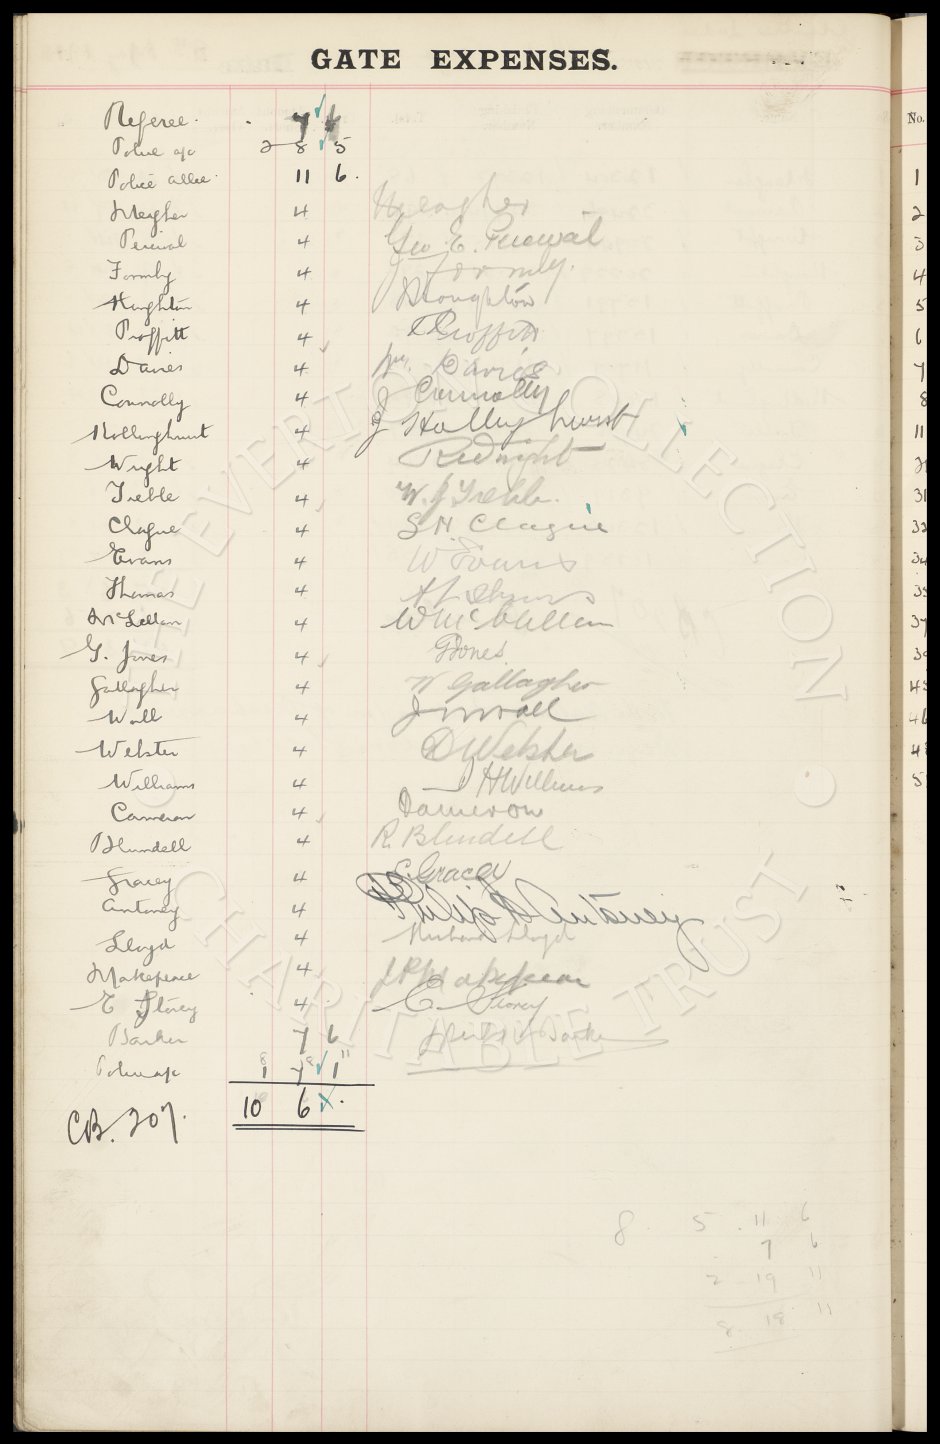 GATE EXPENSES.
Referee. 7 6
Police a/c 2 8 5
Police allce. 11 6.
Meagher 4 Meagher
Percival 4 Geo. E. Percival
Formby 4 J Formby.
Houghton 4 Houghton
Proffitt 4 Proffitt
Davies 4 Wm. Davies
Connolly 4 J Connolly
Hollinghurst 4 J Hollinghurst
Wright 4 R Wright
Treble 4 W. J Treble.
Clague 4 S H Clague
Evans 4 W Evans
Thomas 4
McLellan 4 W McClellan
G. Jones 4 G Jones
Gallagher 4 W Gallagher
Wall 4 J W Wall
Webster 4 D Webster
Williams 4 J H Williams
Cameron 4 D Cameron
Blundell 4 R. Blundell
Gracey 4 C. Gracey
Antoney 4 Philip H Antoney
Lloyd 4 Richard Lloyd
Makepeace 4 J R Makepeace
E Storey 4 E. Storey
Barker 7 6 Barker
Police a/c 1 7 1
8 8 11
10 6
CB. 207.
8. 5. 11 6
7 6
2 19 11
8. 18 11
No.
1
2
3
4
5
6
7
8
11
31
32
34
35
37